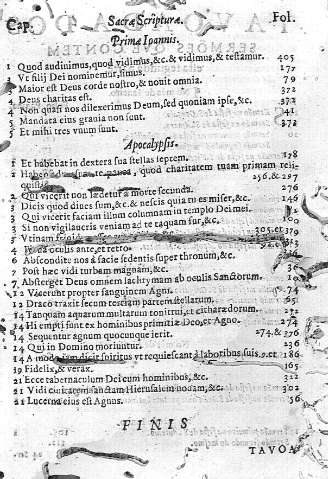 Cap. Sacræ Scripturæ. Fol.
Prima Ioannis.
1 Quod audinimus, quod vidimus, &c. & vidimus, & testamur. 405
3 Vt filij Dei nominemur, simus. 277
3 Maior est Deus corde nostro, & nouit omnia. 79
4 Deus charitas est. 372
4 Non quod nos dilexerimus Deum, sed quoniam ipse, &c. 372
5 Mandata eius grauia non sunt. 341
5 Et mihi tres vnum sunt. 372
Apocalypsis.
1 Et habebat in dextera sua stellas septem. 178
2 quod charitatem tuam primam reli-
quisti 256, & 297
2 Qui vicerit non lædetur a morte secunda. 276
3 Dicis quod diues sum, &c. & nescis quia tu es miser, &c. 146
3 Qui vicerit faciam illum columnam in templo Dei mei. 102
3 Si non vigilaueris veniam ad te taquam fur, &c. 102
3 Vtinam 305. et 379
4 oculis ante, et retro
6 Abscondite nos à facie sedentis super thronum, &c.
7 Post hæc vidi turbam magnam, &c.
7 Absterget Deus omnem lachrymam ab oculis Sanctorum.
12 Vicerunt propter sanguinem Agni.
12 Draco traxit secum tertiam partem stellarum. 65
14 Tanquam aquarum multarum tonitrui, et citharædorum. 274
14 Hi empti sunt ex hominibus primitiæ Deo, et Agno. 274
14 Sequuntur agnum quocunque ierit. 274, & 376
14 Qui in Domino moriuntur. 236
14 A modo iam dicit spiritus vt requiescant à laboribus suis. 9. et 186
19 Fidelis, & verax. 165
21 Ecce tabernaculum Dei cum hominibus, &c. 322
21 Vidi ciuitatem sanctam Hierusalem nouam, &c. 302
21 Lucerna eius est Agnus. 56
FINIS
TAVOA